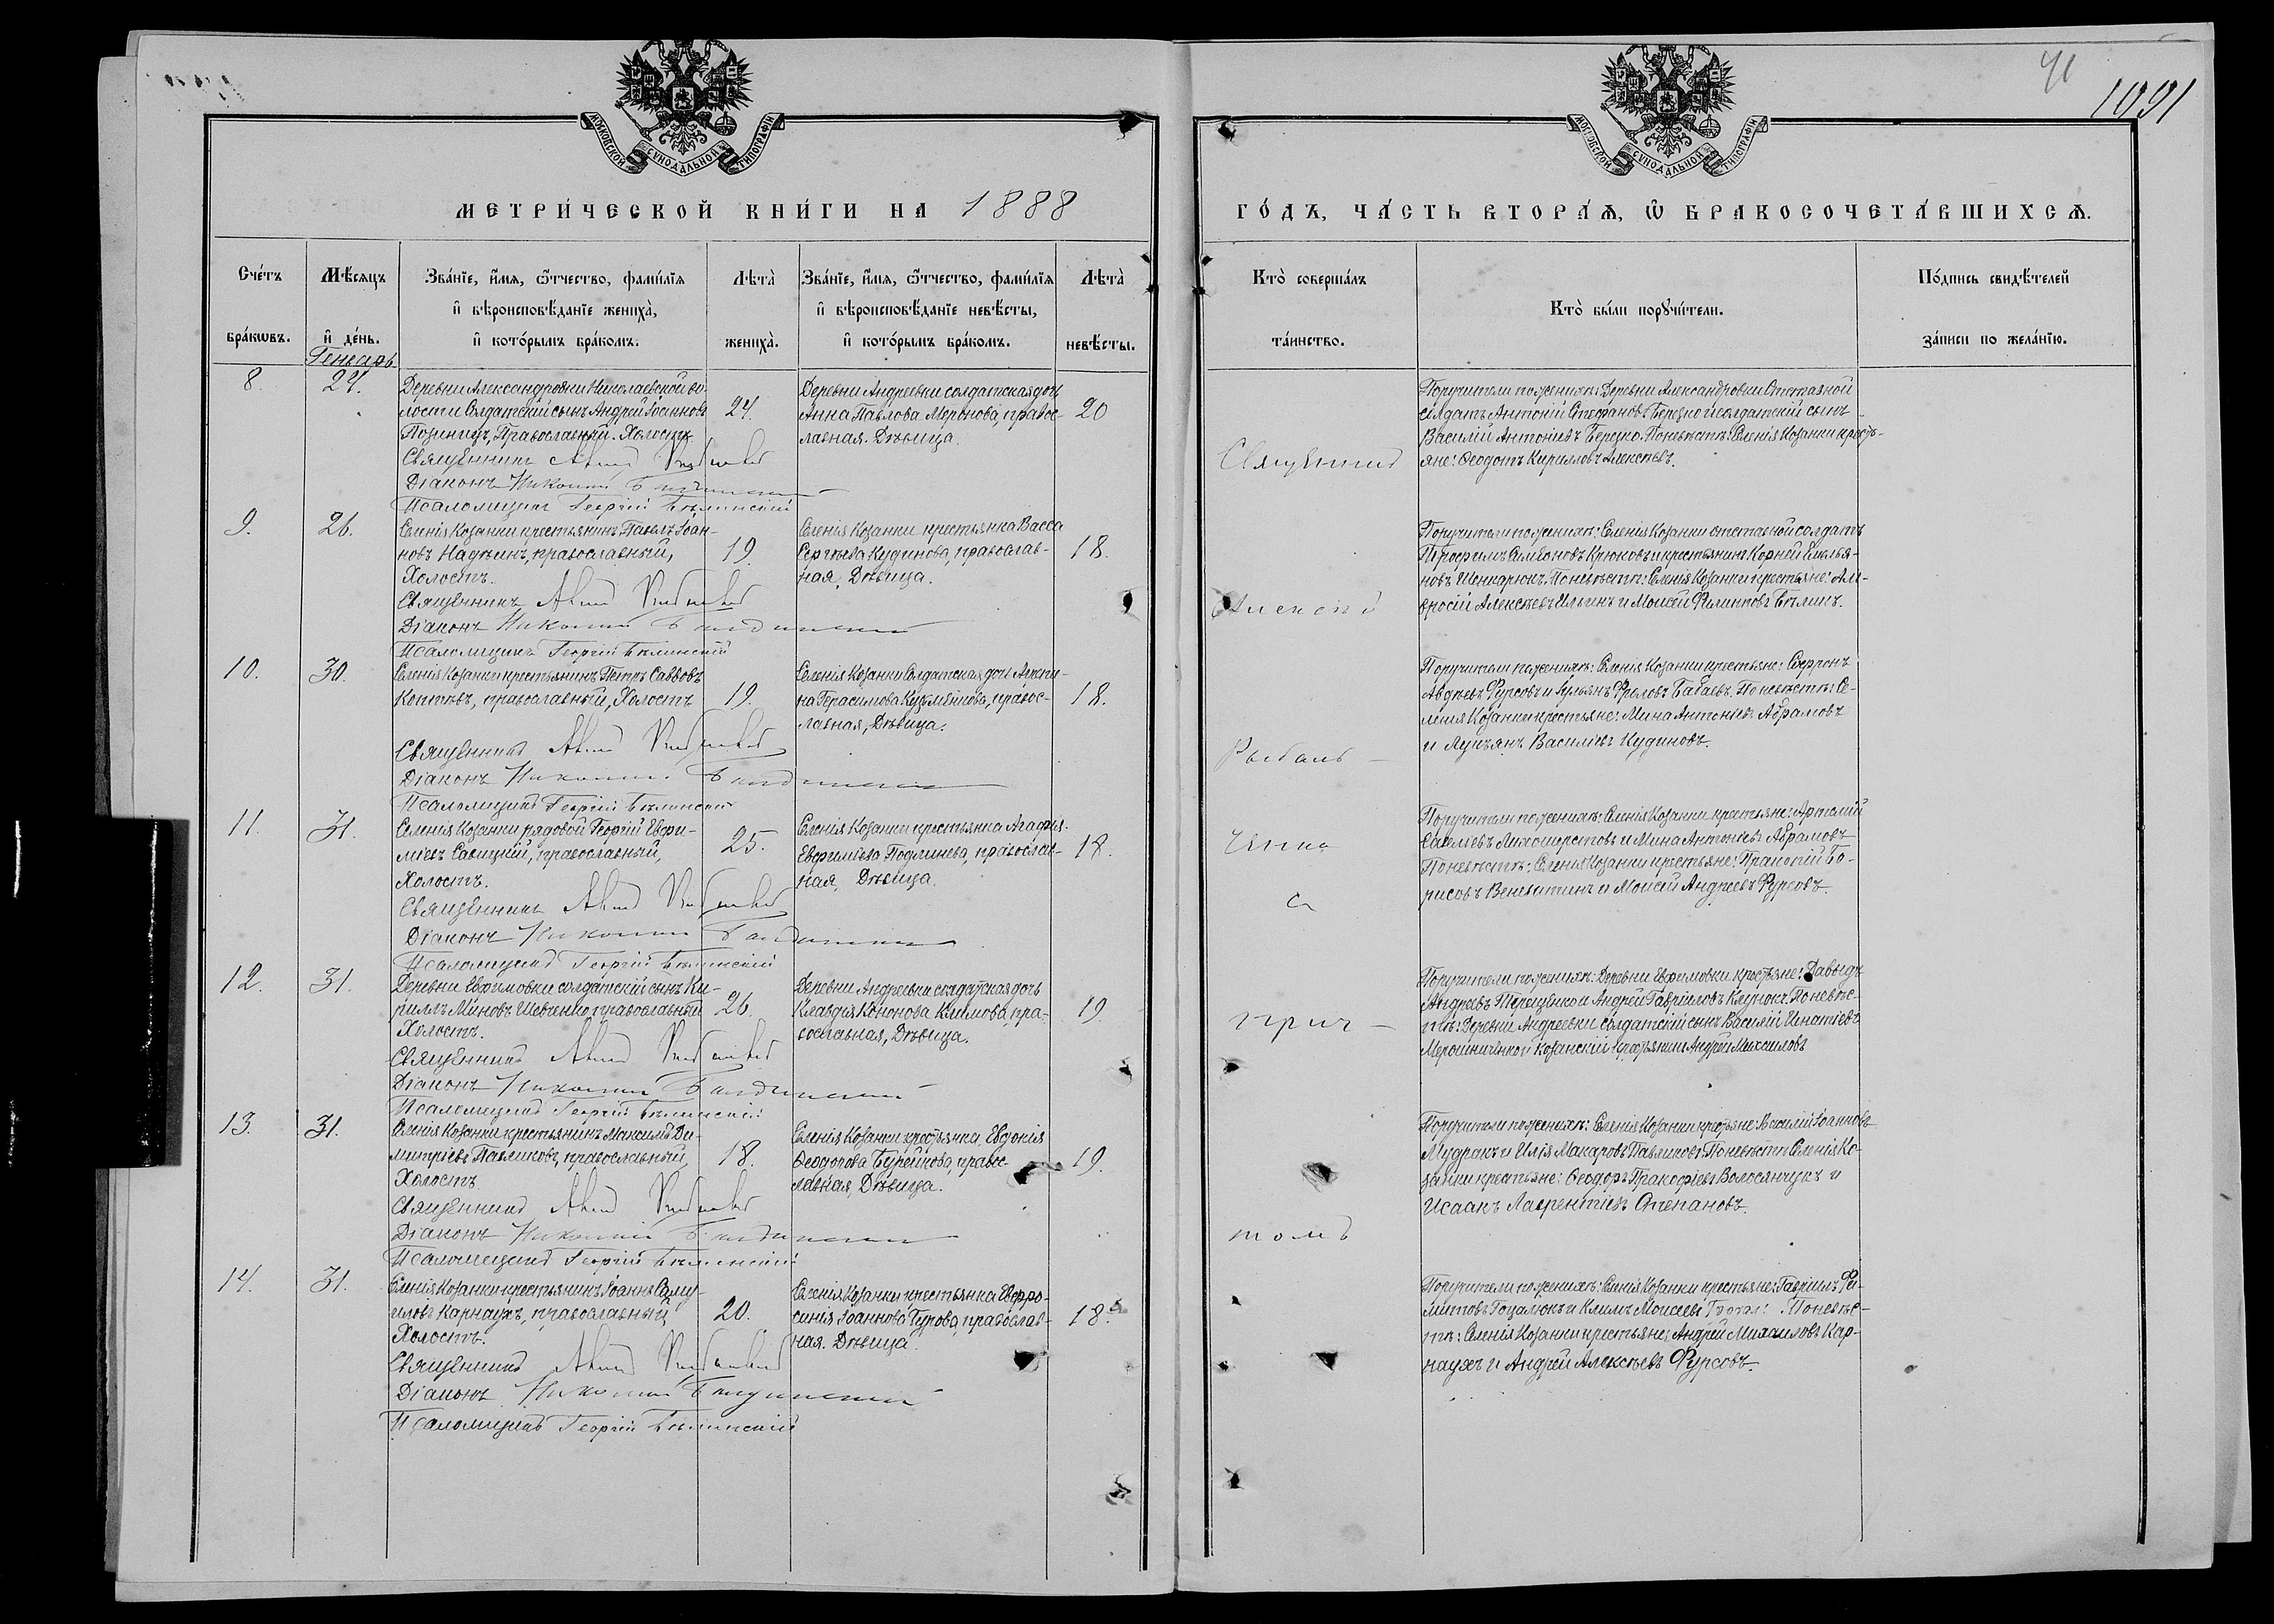 41
1091
МОСКОВСКОЙ СѴНОДАЛЬНОЙ ТИПОГРАФІИ
МОСКОВСКОЙ СѴНОДАЛЬНОЙ ТИПОГРАФІИ
МЕТРИ́ЧЕСКОЙ КНИ́ГИ НА 1888
ГО́ДЪ, ЧА́СТЬ ВТОРА́Ѧ, Ѡ҆ БРАКОСОЧЕТА́ВШИХСѦ.
Сче́тъ
бра́кѡвъ.
Мѣ́сяцъ
и҆ де́нь.
Генварь
Зва́нїе, и҆́мѧ, ѻ҆́тчество, фами́лїѧ
и҆ вѣроисповѣ́данїе жениха̀,
и҆ кото́рымъ бра́комъ.
Лѣта̀
жениха̀.
Зва́нїе, и҆́мѧ, ѻ҆́тчество, фами́лїѧ
и҆ вѣроисповѣ́данїе невѣ́сты,
и҆ кото́рымъ бра́комъ.
Лѣта̀
невѣ́сты.
Кто̀ соверша́лъ
та́инство.
Кто̀ бы́ли порꙋчи́тели.
По́дпись свидѣ́телей
за́писи по жела́нїю.
8.
24.
Деревни Александровки Николаевской во-
лости Солдатскій сынъ Андрей Іоанновъ
Православный. Холостъ
Священникъ
Діаконъ
Псаломщикъ Георгій Бѣлинскій
24.
Деревни Андреевки солдатская дочь
Анна Павлова Миронова, правос-
лавная. Дѣвица.
20
Поручители по женихѣ: Деревни Александровки Отставной
солдатъ Антоній Стефановъ Березко и солдатскій сынъ
Василій Антоніевъ Березко. По невѣстѣ: Селенія Козанки кресть-
яне: Ѳеодотъ Кирилловъ Алексѣевъ.
9.
26.
Селенія Козанки крестьянинъ Павелъ Іоан-
новъ православный,
Холостъ.
Священникъ
Діаконъ
Псаломщикъ Георгій Бѣлинскій
19.
Селенія Козанки крестьянка Васса
Сергѣева Кудинова, православ-
ная, Дѣвица.
18.
Поручители по женихѣ: Селенія Козанки отставной солдатъ
Трофимъ Симеоновъ Крюковъ и крестьянинъ Корней Емелья-
новъ По невѣстѣ: Селенія Козанки крестьяне: Ам-
вросій Алексѣевъ Ильинъ и Моисей Филиповъ Бѣлинъ.
10.
30.
Селенія Козанки крестьянинъ Петръ Саввовъ
Коптѣвъ, православный, Холостъ
Священникъ
Діаконъ
Псаломщикъ Георгій Бѣлинскій
19.
Селенія Козанки Солдатская дочь
Герасимова Кузменкова, правос-
лавная, Дѣвица.
18.
Поручители по женихѣ: Селенія Козанки крестьяне: Софронъ
Авдѣевъ Фурсовъ и Іульянъ Фроловъ Бабаевъ. По невѣстѣ: Се-
ленія Козанки крестьяне: Мина Антоніевъ Абрамовъ
и Лукьянъ Василіевъ Кудиновъ.
11.
31.
Селенія Козанки рядовой Георгій Евфи-
міевъ Савицкій, православный,
Холостъ.
Священникъ
Діаконъ
Псаломщикъ Георгій Бѣлинскій
25.
Селенія Козанки крестьянка Агафія
Евфиміева православ-
ная, Дѣвица.
18.
Поручители по женихѣ: Селенія Козанки крестьяне: Артемій
Савельевъ Лихошерстовъ и Мина Антоніевъ Абрамовъ
По невѣстѣ: Селенія Козанки крестьяне: Пракопій Бо-
рисовъ Веневитинъ и Моисей Андреевъ Фурсовъ.
12.
31.
Деревни Евфимовки солдатскій сынъ Ки-
риллъ Миновъ Шевченко православный
Холостъ.
Священникъ
Діаконъ
Псаломщикъ Георгій Бѣлинскій
26.
Деревни Андреевки солдатская дочь
Клавдія Кононова Климова, пра-
вославная, Дѣвица.
19.
Поручители по женихѣ: Деревни Евфимовки крестьяне: Давыдъ
Андреевъ Терещенко и Андрей Гавріиловъ По невѣс-
тѣ: Деревни Андреевки солдатскій сынъ Василій Игнатіевъ
Мерошниченко и козанскій крестьянинъ Андрей Михаиловъ
13.
31.
Селенія Козанки крестьянинъ Максимъ Ди-
митріевъ Павликовъ, православный,
Холостъ.
Священникъ
Діаконъ
Псаломщикъ Георгій Бѣлинскій
18.
Селенія Козанки крестьянка Евдокія
Ѳеодорова Бурейкова, право-
славная, Дѣвица.
19.
Поручители по женихѣ: Селенія Козанки крестьяне: Василій Іоанновъ
Мудракъ и Илія Макаровъ Павликовъ. По невѣстѣ Селенія Ко-
занки крестьяне: Ѳеодоръ Пракофіевъ Волосянчукъ и
Исаакъ Лаврентіевъ Степановъ.
14.
31.
Селенія Козанки крестьянинъ Іоаннъ Саму-
иловъ Карнаухъ, православный,
Холостъ.
Священникъ
Діаконъ
Псаломщикъ Георгій Бѣлинскій
20.
Селенія Козанки крестьянка Евфро-
синія Іоаннова Гурова, православ-
ная. Дѣвица.
18.
Поручители по женихѣ: Селенія Козанки крестьяне: Гавріилъ Фи-
липовъ Гоцалюкъ и Климъ Моисеевъ По невѣс-
тѣ: Селенія Козанки крестьяне, Андрей Михаиловъ Кар-
наухъ и Андрей Алексѣевъ Фурсовъ.
Священникъ
Алексѣй
Рыбаль-
ченко
съ
прич-
томъ